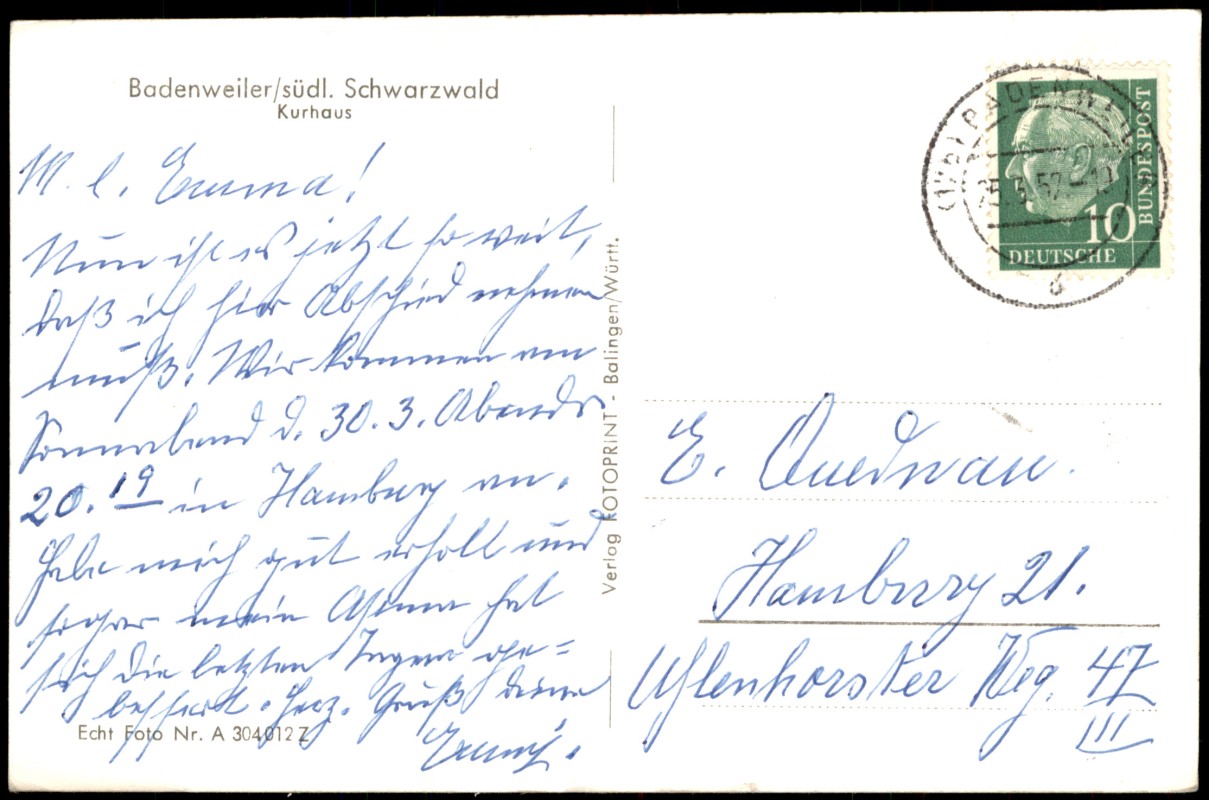 Badenweiler/südl. Schwarzwald
Kurhaus
M. l. Emma!
Nun ist es jetzt so weit,
daß ich hier Abschied nehmen
muß. Wir kommen am
Sonnabend d. 30.3. Abends
20.19 in Hamburg an.
Habe mich gut erholt und
sogar mein Asthma hat
sich die letzten Tagen ge=
bessert. Herz. Gruß deine
Echt Foto Nr. A 304012 Z
Verlag FOTOPRINT - Balingen/Württ.
BADENWEILER
57-10
d
10
DEUTSCHE
BUNDESPOST
E. Quednau.
Hamburg 21.
Uhlenhorster Weg. 47
III